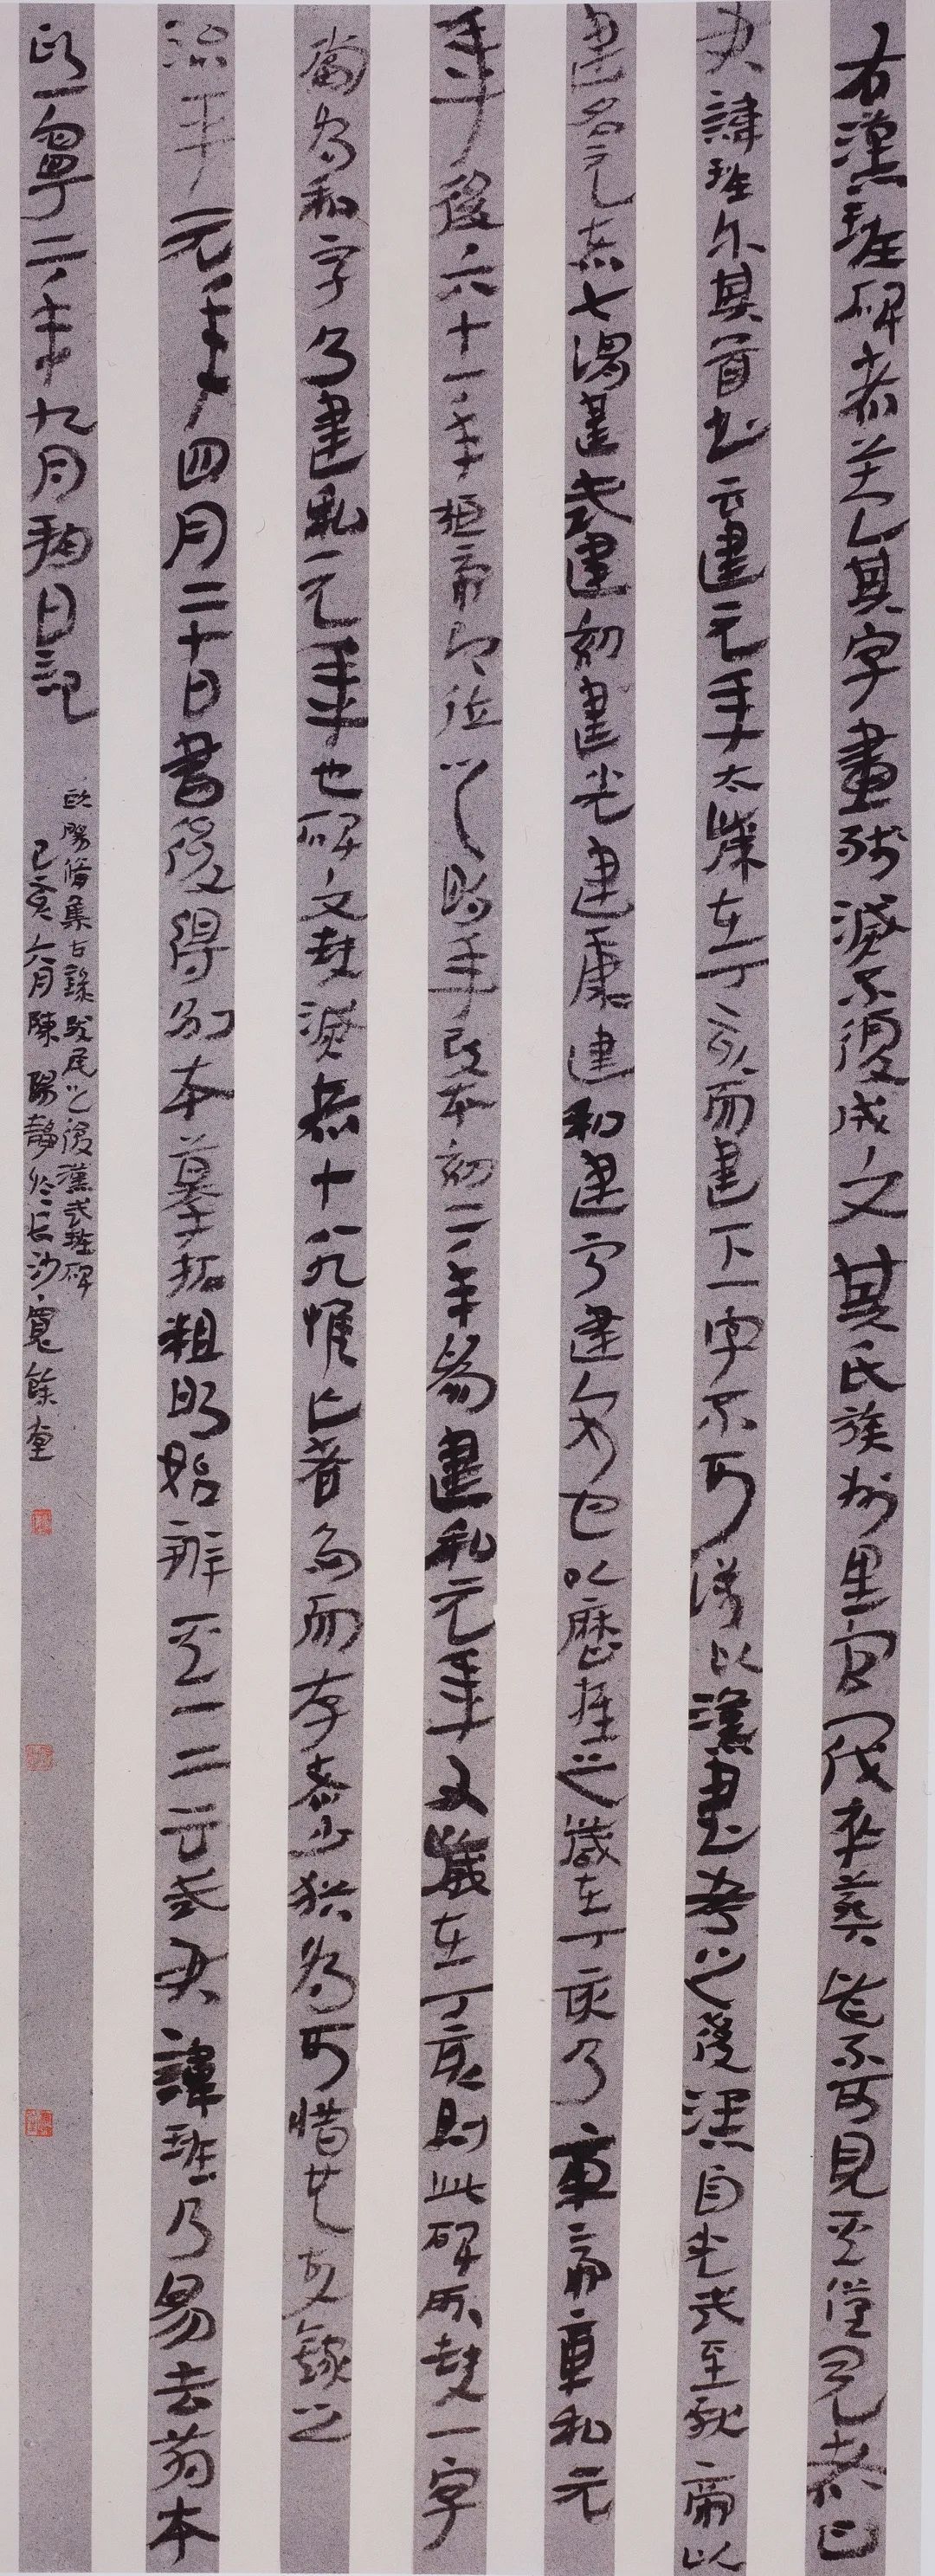 右漢班碑者蓋其字畫殘滅不復成文其氏族州里官伐卒葬皆不可見其僅見者曰
君諱班尔其首書云建元年太歲在丁亥而建下一字不可識以漢書考之後漢自光武至獻帝以
建名元者七謂建武建初建光建康建和建寧建安也以曆推之歲在丁亥乃章帝章和元
年後六十一年桓帝即位之明年改本初二年為建和元年又歲在丁亥則此碑所缺一字
當為和字乃建和元年也碑文缺滅者十八九惟亡者多而存者少猶為可惜也故錄之
治平元年四月二十日書後得別本摹拓粗明始辨其一二云武君諱班乃易去前本
熙寧二年九月朔日記
歐陽脩集古錄跋尾之後漢武班碑
己亥六月陳陽靜於長沙寬餘堂